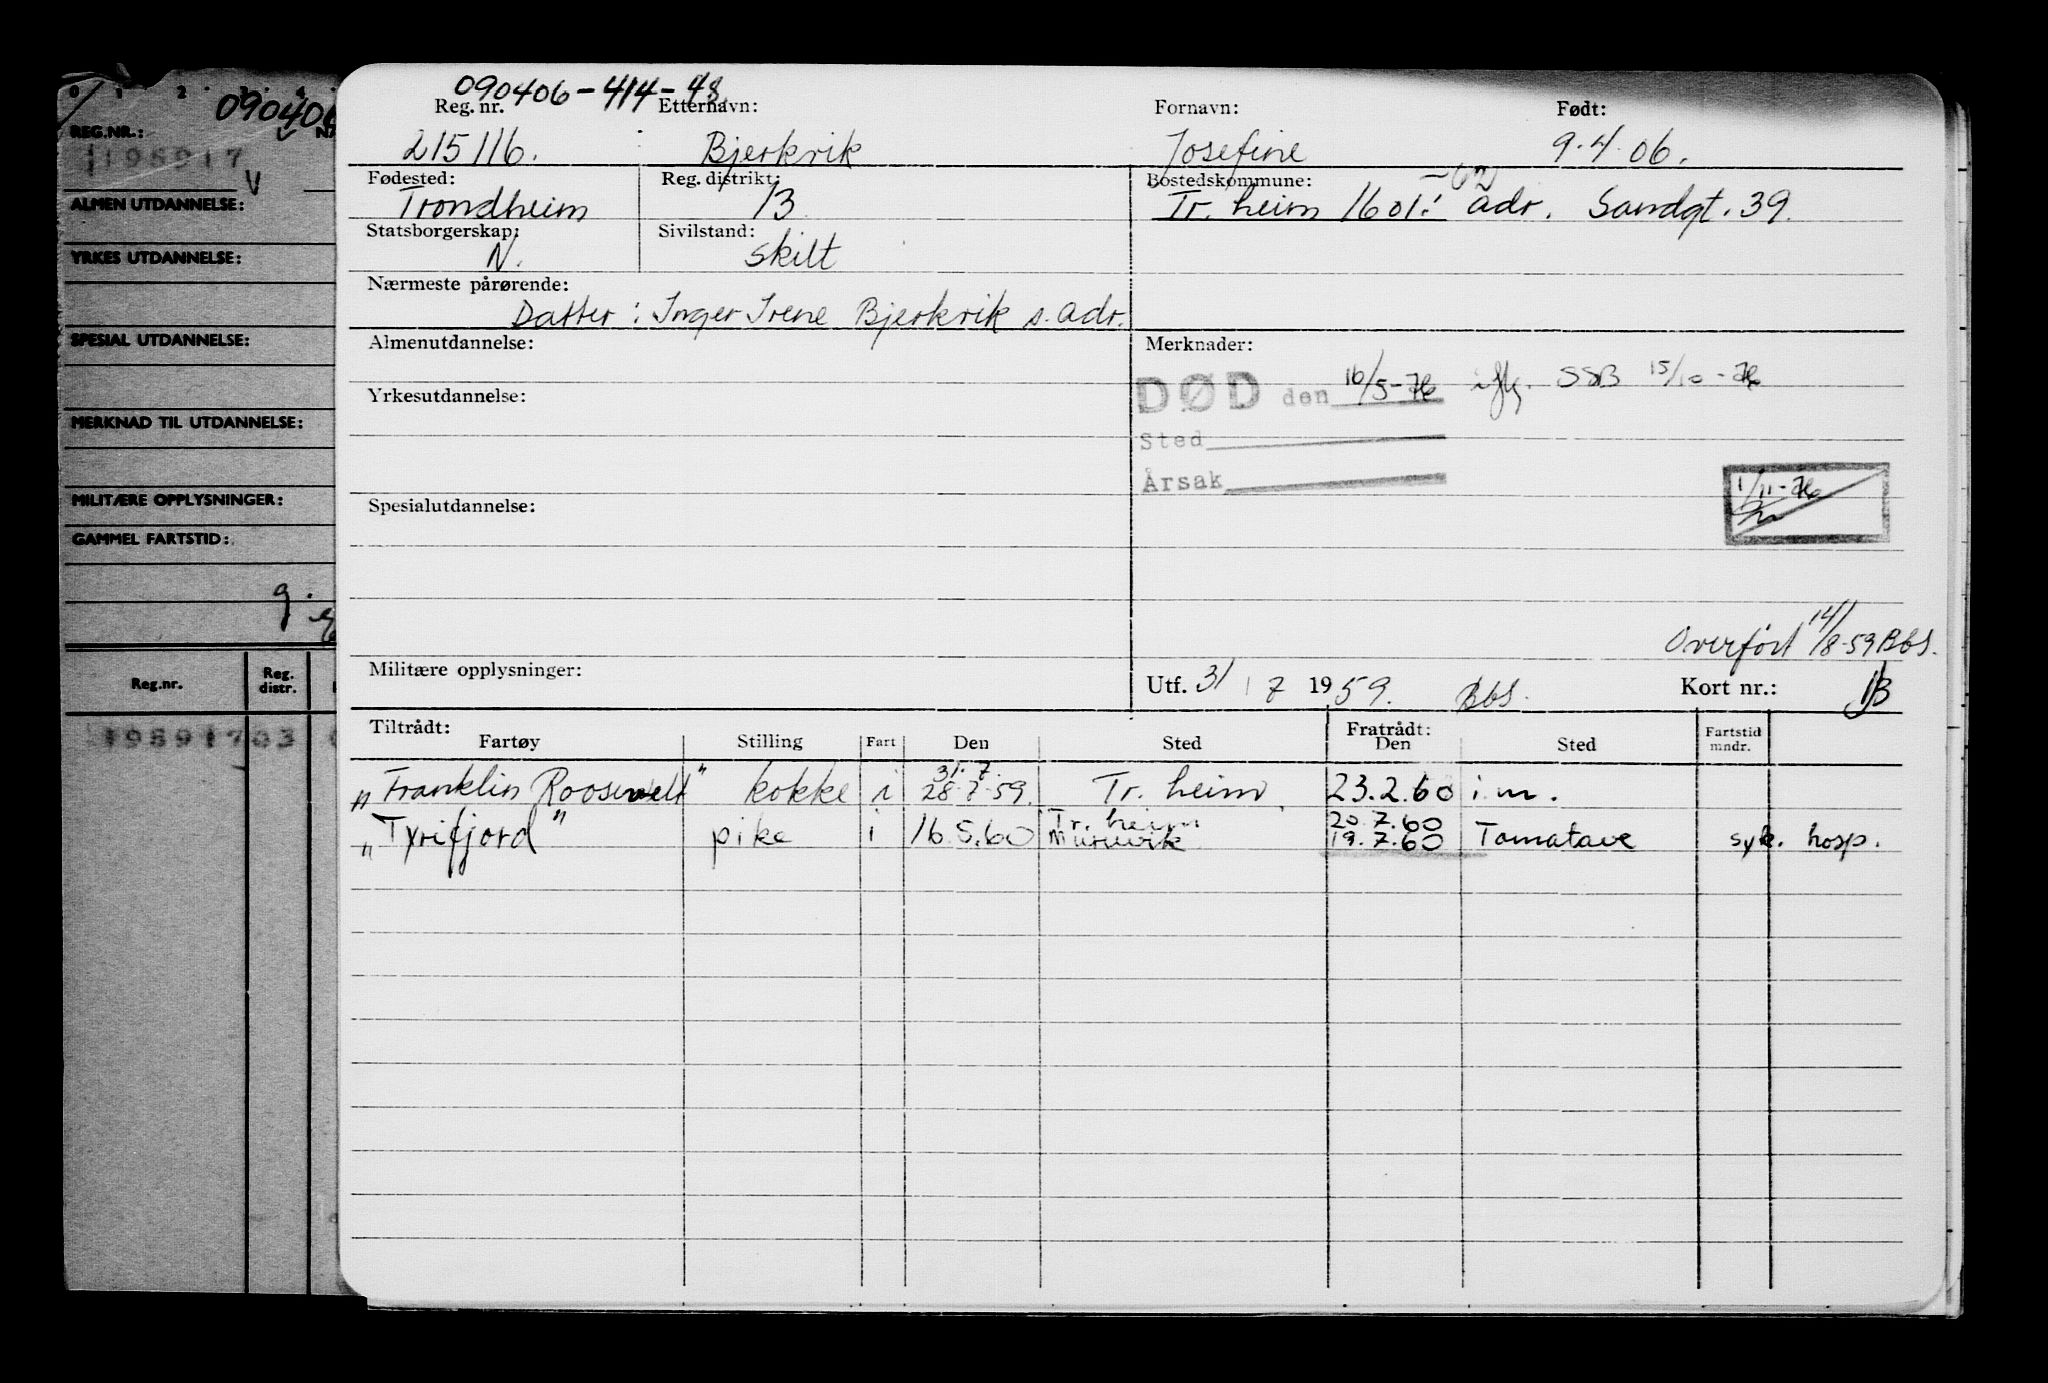 0 1 2 3 4
090406
REG.NR.:
195917
V
ALMEN UTDANNELSE:
YRKES UTDANNELSE:
SPESIAL UTDANNELSE:
MERKNAD TIL UTDANNELSE:
MILITÆRE OPPLYSNINGER:
GAMMEL FARTSTID:
Reg.nr. Reg. distr.
195917 03
090406-414-48
Reg. nr. Etternavn: Fornavn: Født:
215116. Bjerkvik Josefine 9.4.06.
Fødested: Reg. distrikt: Bostedskommune: -62
Trondheim 13 Tr. heim 1601. adr. Sandgt. 39.
Statsborgerskap: Sivilstand:
N. skilt
Nærmeste pårørende:
Datter: Inger Irene Bjerkvik s. adr.
Almenutdannelse: Merknader:
DØD den 16/5-76 iflg. SSB 15/10-76
Yrkesutdannelse:
Sted
Årsak
1/11-76
Spesialutdannelse:
Overført 14/8-59 Bbs.
Militære opplysninger: Utf. 31/7 1959. Bbs. Kort nr.:
Tiltrådt: Fratrådt:
Fartøy Stilling Fart Den Sted Den Sted Fartstid mndr.
31.7.
"Franklin Roosevelt" kokke i 28.7.59. Tr. heim 23.2.60 i.m.
Tr. heim 20.7.60
"Tyrifjord" pike i 16.5.60 Muruvik 19.7.60 Tamatave syk. hosp.